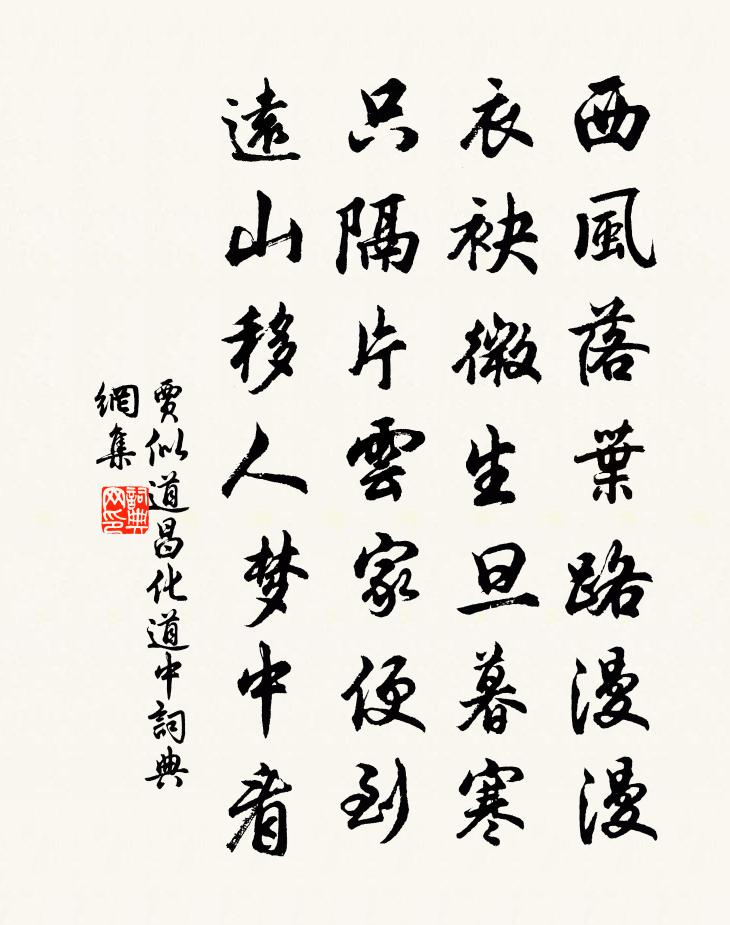 西風落葉路漫漫
衣袂微生旦暮寒
只隔片雲家便到
遠山移人梦中看
賈似道昌化道中詞典
網集
詞典
网印